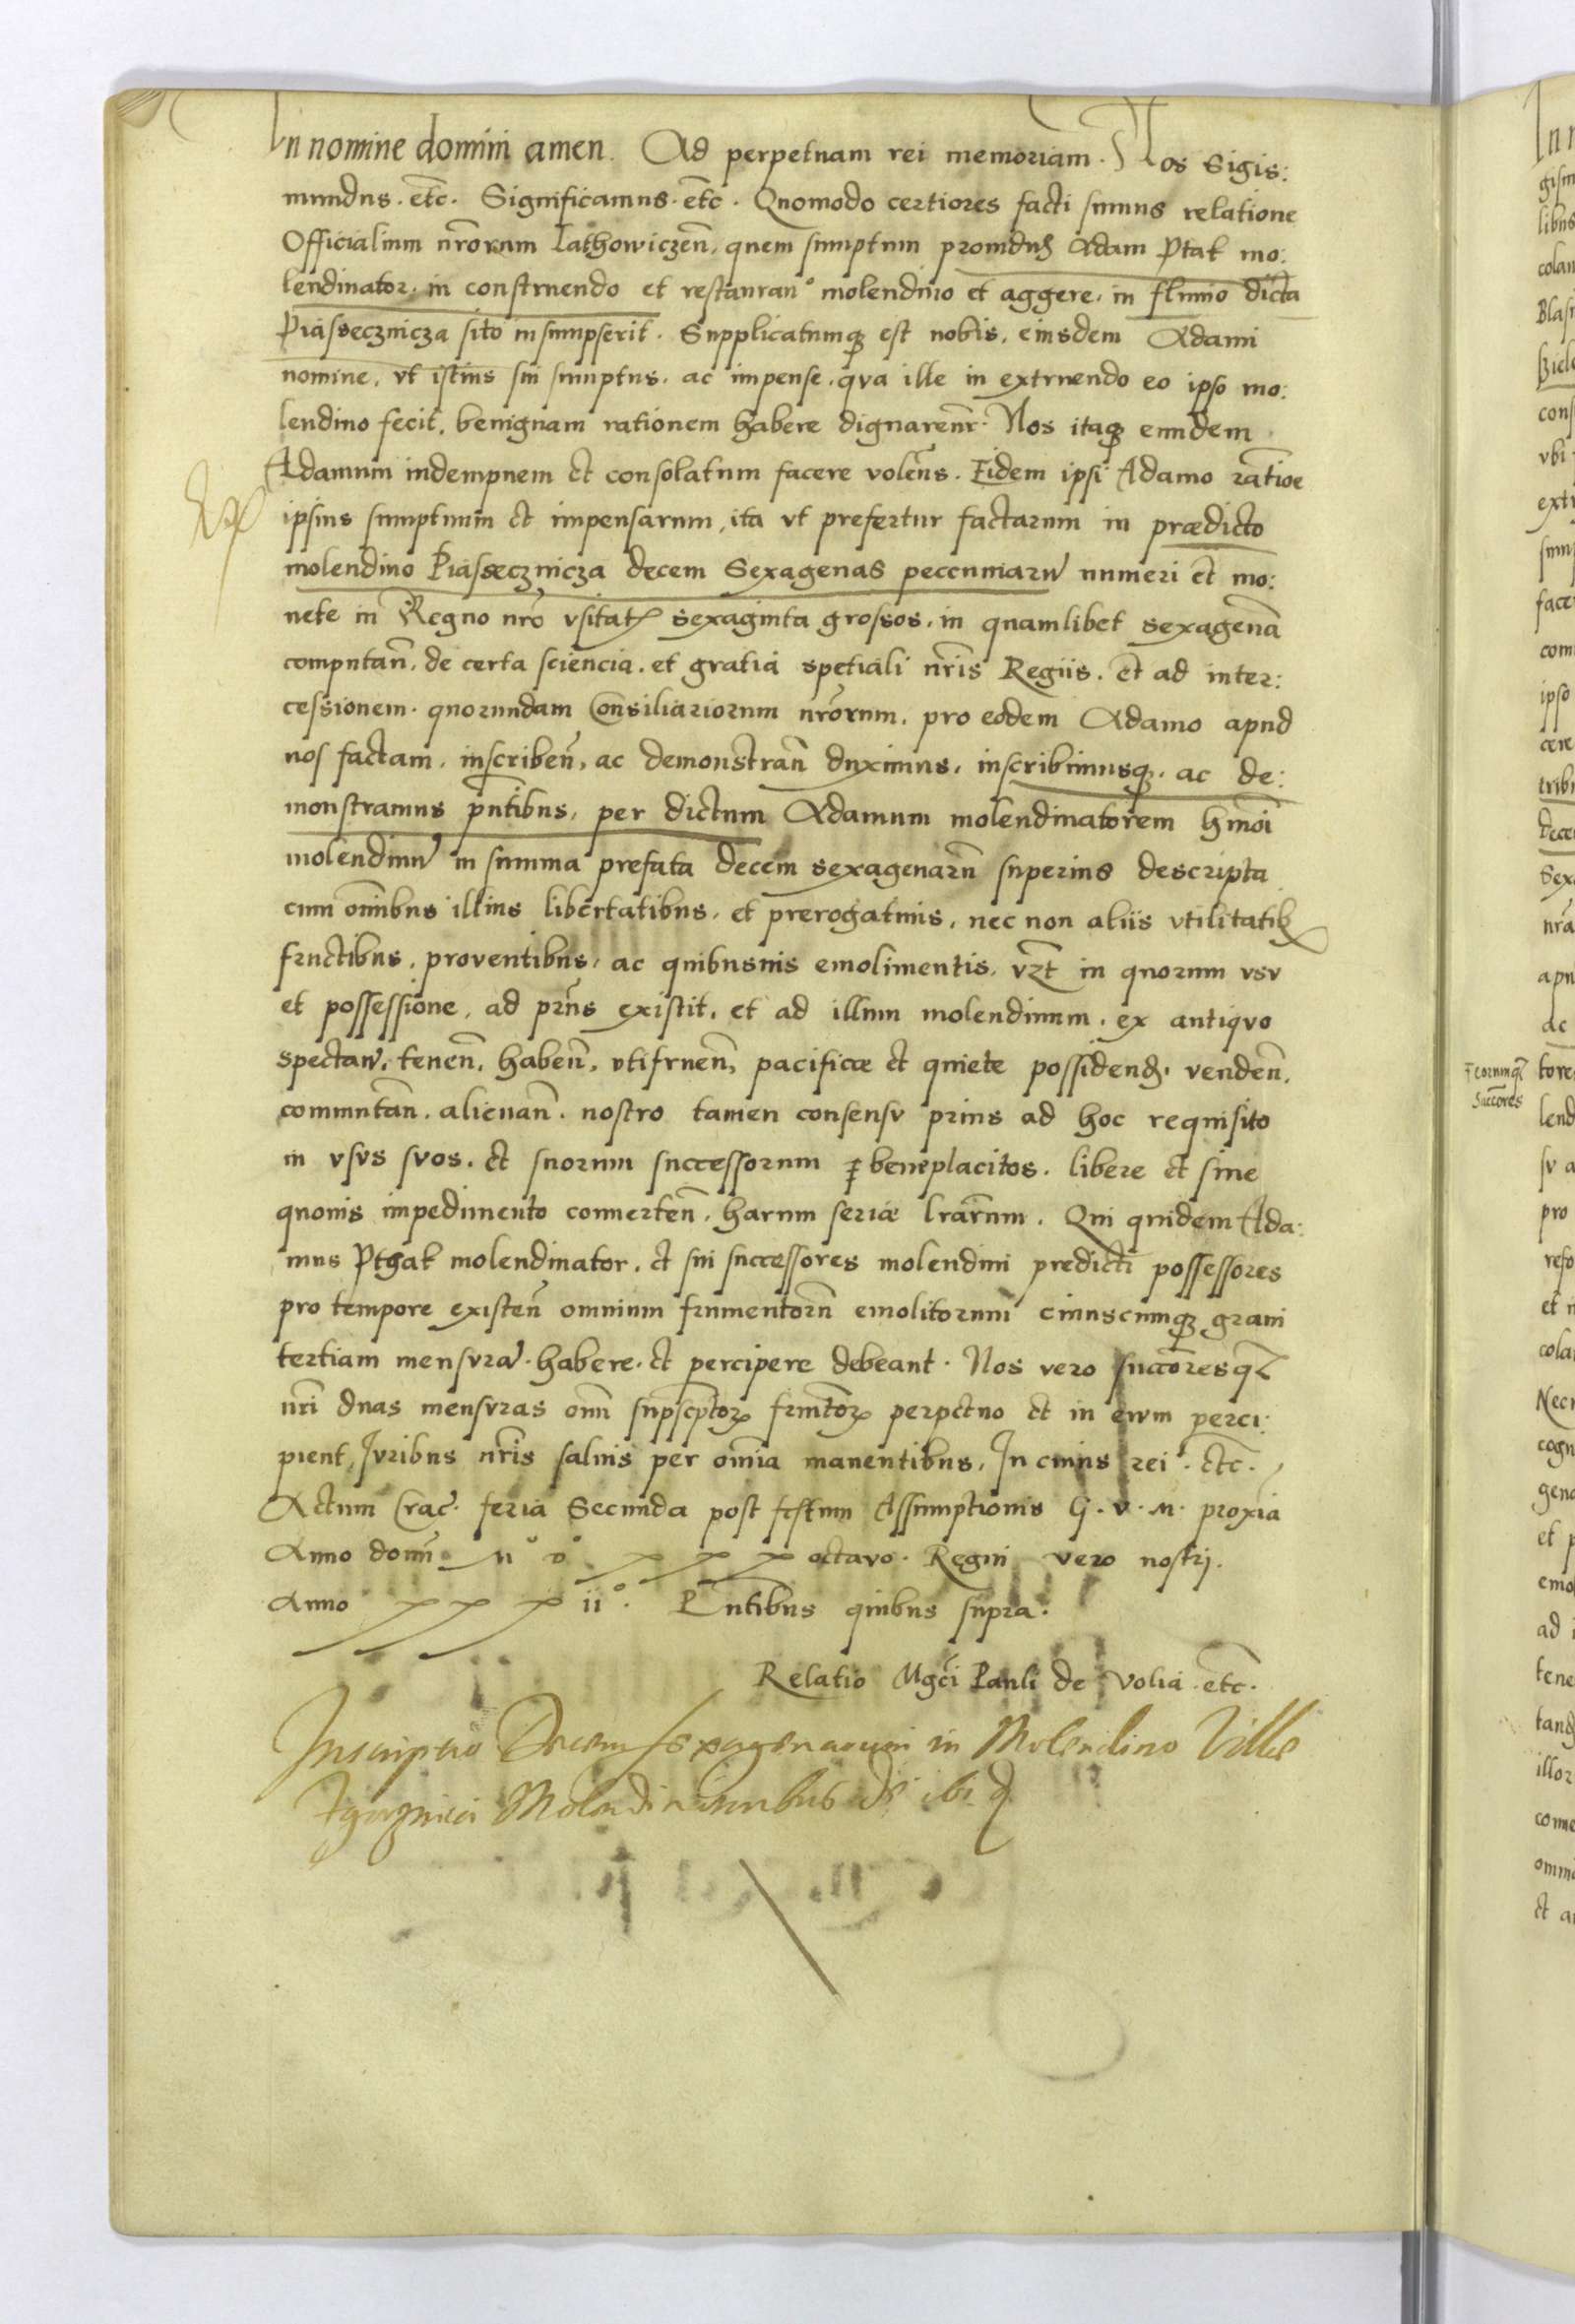 In nomine domini amen. Ad perpetuam rei memoriam. Nos Sigis:
mundus. etc. Significamus. etc. Quomodo certiores facti sumus relatione
Officialium nrorum Lathowiczen, quem sumptum prouidus Adam Ptak mo:
lendinator, in construendo et restauran° molendino et aggere, in fluuio dicta
Piassecznicza sito insumpserit. Supplicatumq est nobis, eiusdem Adami
nomine, vt istius sui sumptus, ac impense, qva ille in extruendo eo ipso mo:
lendino fecit, benignam rationem habere dignarenr. Nos itaq eundem
Adamum indempnem et consolatum facere volens. Eidem ipsi Adamo ratioe
ipsius sumptuum et impensarum, ita vt prefertur factarum in prædicto
molendino Piassecznicza decem Sexagenas peccuniaru numeri et mo:
nete in Regno nro vsitat sexaginta grossos, in quamlibet sexagena
computan, de certa sciencia, et gratia spetiali nris Regiis, et ad inter:
cessionem quorundam Consiliariorum nrorum, pro eodem Adamo apud
nos factam, inscriben, ac demonstran duximus, inscribimusq, ac de:
monstramus pntibus, per dictum Adamum molendinatorem hmoi
molendinu in summa prefata decem sexagenaru superius descripta
cum omibus illius libertatibus, et prerogatiuis, nec non aliis vtilitatib
fructibus, proventibus, ac quibusuis emolimentis, vzt in quorum vsv
et possessione, ad prns existit, et ad illum molendinum, ex antiqvo
spectan, tenen, haben, vtifruen, pacificæ et quiete possiden, venden,
commutan, alienan, nostro tamen consensv prius ad hoc requisito
in vsvs svos, et suorum successorum p beneplacitos, libere et sine
quouis impedimento conuerten, harum seriæ lrarum. Qui quidem Ada:
mus Pthak molendinator, et sui successores molendini predicti possessores
pro tempore existen omnium frumentoru emolitorum cuiuscumq grani
tertiam mensvra habere, et percipere debeant. Nos vero succoresq
nri duas mensvras omi supscptor frumtor perpetuo et in ewm perci:
pient, Ivribus nris saluis per omia manentibus, In cuius rei. etc.
Actum Crac. feria Secunda post festum Assumptionis G. v. M. proxia
Anno domi M° v° x x x octavo. Regni vero nostrj.
Anno x x x ii°. Pntibus quibus supra.
Relatio Mgci Pauli de volia. etc.
Inscriptio Decem sexagenarum in Molendino Villæ